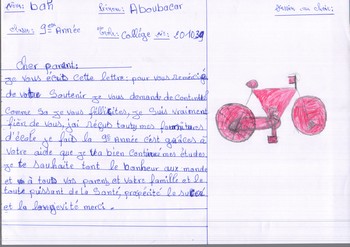 Nom: bah Prénom: Aboubacar
Classe: 9ème Année Ecole: Collège N°: 20-1039
Dessin au choix:
cher parent:
je vous écris cette lettre: pour vous remercié
de votre Soutenir je vous demande de Continué
Comme Sa je vous féllicites, je Suis vraiment
fier de vous, j'ai réçus tout mes fournitures
d'école je fais la 9è Année c'est grâces à
votre aide que je va bien Continué mes études,
je te souhaite tant le bonheur aux monde
et à tout vos parent, et votre famille et le
toute puissant de la Santé, propérité le succé
et la longévité merci.